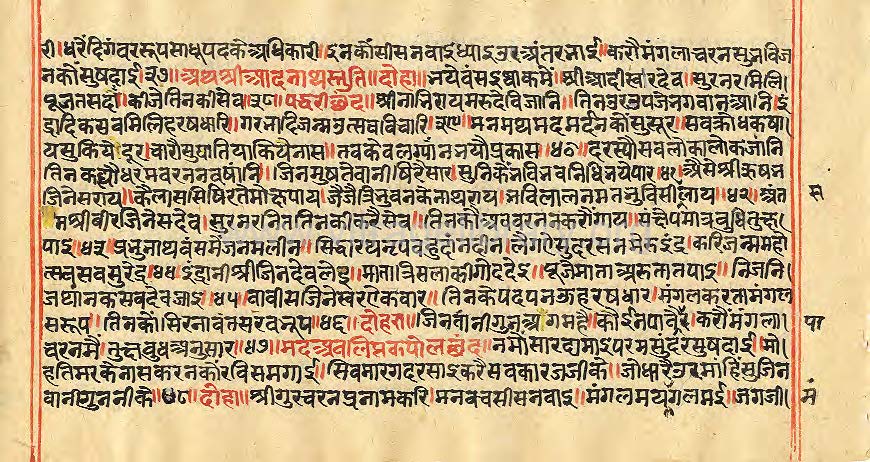 री।धरैंदिगंवररूपसाधूपदकेअधिकारी।इनकौंसीसनवाइध्याइउरअंतरनाई।करौंमंगलाचरनसुनविज
नकौंसुषदाई३७॥अथश्रीआदनाथस्तुति॥दोहा॥नयेवंसइष्वाकमें।श्रीआदीस्वरदेव।सुरनरमिलि
पूजतसदां।कीजेतिनकीसेव।३८॥पद्धरीछंद॥श्रीनाभिरायमरुदेविजानि।तिनउरउपजेभगवानआनि।इं
द्रादिकसबमिलिहरषधारि।गरभादिजन्मउत्सवविचारि।३९॥मनमथमदमर्दनकौंसुसूर।सवकौंधकषा
यसुकिये दूर।चारौंसुघातियाकियेनास।तवकेवलग्यांनभयौप्रकास॥४०॥दरस्यौसवलोकालोकजांनि
तिनकह्यौधरमवरननवषांनि।जिनमुषतेवानीषिरैसार।सुनिकेंभविभवनिधिभयेपार।४१।असेश्रीऋषभ
जिनेसराय।कैलाससिषिरतेमोक्षपाय।जैजैत्रिभुवनकेनाथराय।भविलालनमतभुविसीसलाय॥४२॥अंत
मश्रीवीरजिनेसदेव।सुरनरनितितिनकीकरैसेव॥तिनकौअववरननकरौंगाय।संक्षेपमात्रवुधितुछ
पाइ॥४३॥प्रभुनाथवंसमैंजनमलीन॥सिद्दारथनृपवहुदांनदीन।लेगऐसुदरसनमेरुइंद्र।करिजन्ममहो
त्सवसवसुरेंद्र॥४४॥इहानीश्रीजिनदेवलेइ॥मातात्रिसलाकीगोददेइ॥पूजैमाताअरुतातपाइ॥निजनि
जथानकसवदेवजाइ॥४५॥वावीसजिनेस्वरऐकवार॥तिनकेपदपनऊहरषधार।मंगलकरतामंगल
सरूप।तिनकौंसिरनावतसरवभूप॥४६॥दोहरा॥जिनवांनीगुनअगमहै।कोईनपावैछेह।करौंमंगला
चरनमैं।तुछवुधअनुसार॥४७॥मदअवलिप्तकपोलछंद॥नमौंसारदामाइपरमसुंदरसुषदाई।मो
हतिमरकेनासकरनकौंरविसमगाई॥सिवमारगदरसाइकरैसवकारजनीके॥जोधारैउरमांहिंसुजिन
वानीगुननीकै॥४८॥दोहा॥श्रीगुरुचरनप्रनामकरि।मनवचसीसनवाइ॥मंगलमयमंगलमई।जगजी
स
पा
मं